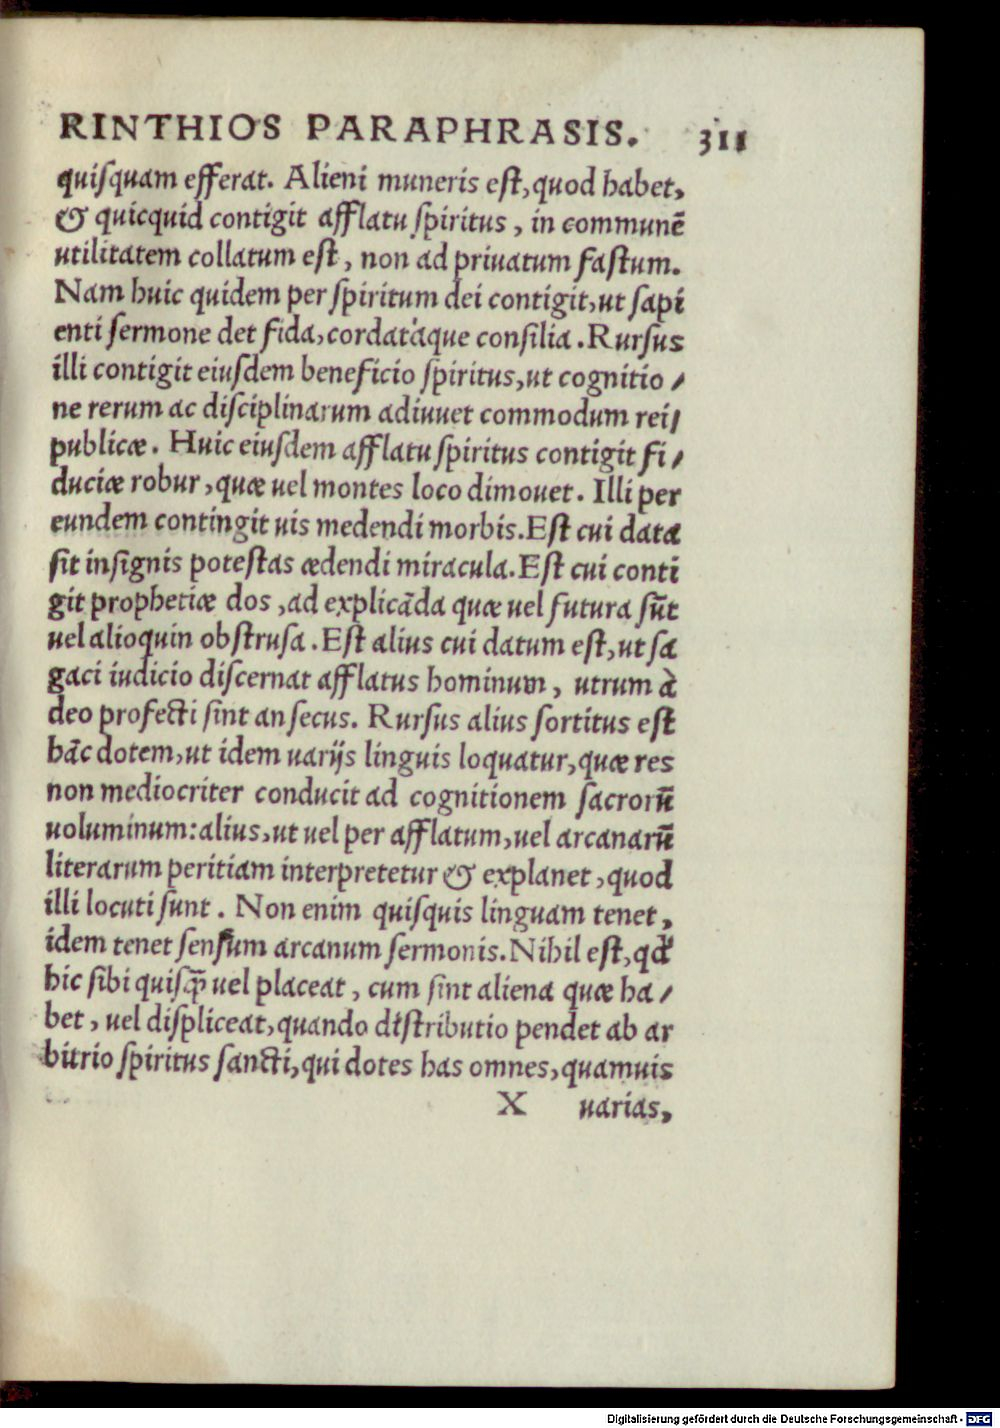 RINTHIOS PARAPHRASIS. 311
quiſquam efferat. Alieni muneris eſt, quod habet,
& quicquid contigit afflatu ſpiritus, in communē
utilitatem collatum eſt, non ad priuatum faſtum.
Nam huic quidem per ſpiritum dei contigit, ut ſapi
enti ſermone det fida, cordatáque conſilia. Rurſus
illi contigit eiuſdem beneficio ſpiritus, ut cognitio/
ne rerum ac diſciplinarum adiuuet commodum rei/
publicæ. Huic eiuſdem afflatu ſpiritus contigit fi/
duciæ robur, quæ uel montes loco dimouet. Illi per
eundem contingit uis medendi morbis. Eſt cui data
ſit inſignis poteſtas ædendi miracula. Eſt cui conti
git prophetiæ dos, ad explicāda quæ uel futura ſūt
uel alioquin obſtruſa. Eſt alius cui datum eſt, ut ſa
gaci iudicio diſcernat afflatus hominum, utrum à
deo profecti ſint an ſecus. Rurſus alius ſortitus eſt
hāc dotem, ut idem uarijs linguis loquatur, quæ res
non mediocriter conducit ad cognitionem ſacrorū
uoluminum: alius, ut uel per afflatum, uel arcanarū
literarum peritiam interpretetur & explanet, quod
illi locuti ſunt. Non enim quiſquis linguam tenet,
idem tenet ſenſum arcanum ſermonis. Nihil eſt, qd'
hic ſibi quiſq̄ uel placeat, cum ſint aliena quæ ha/
bet, uel diſpliceat, quando diſtributio pendet ab ar
bitrio ſpiritus ſancti, qui dotes has omnes, quamuis
X uarias,
Digitalisierung gefördert durch die Deutsche Forschungsgemeinschaft - DFG